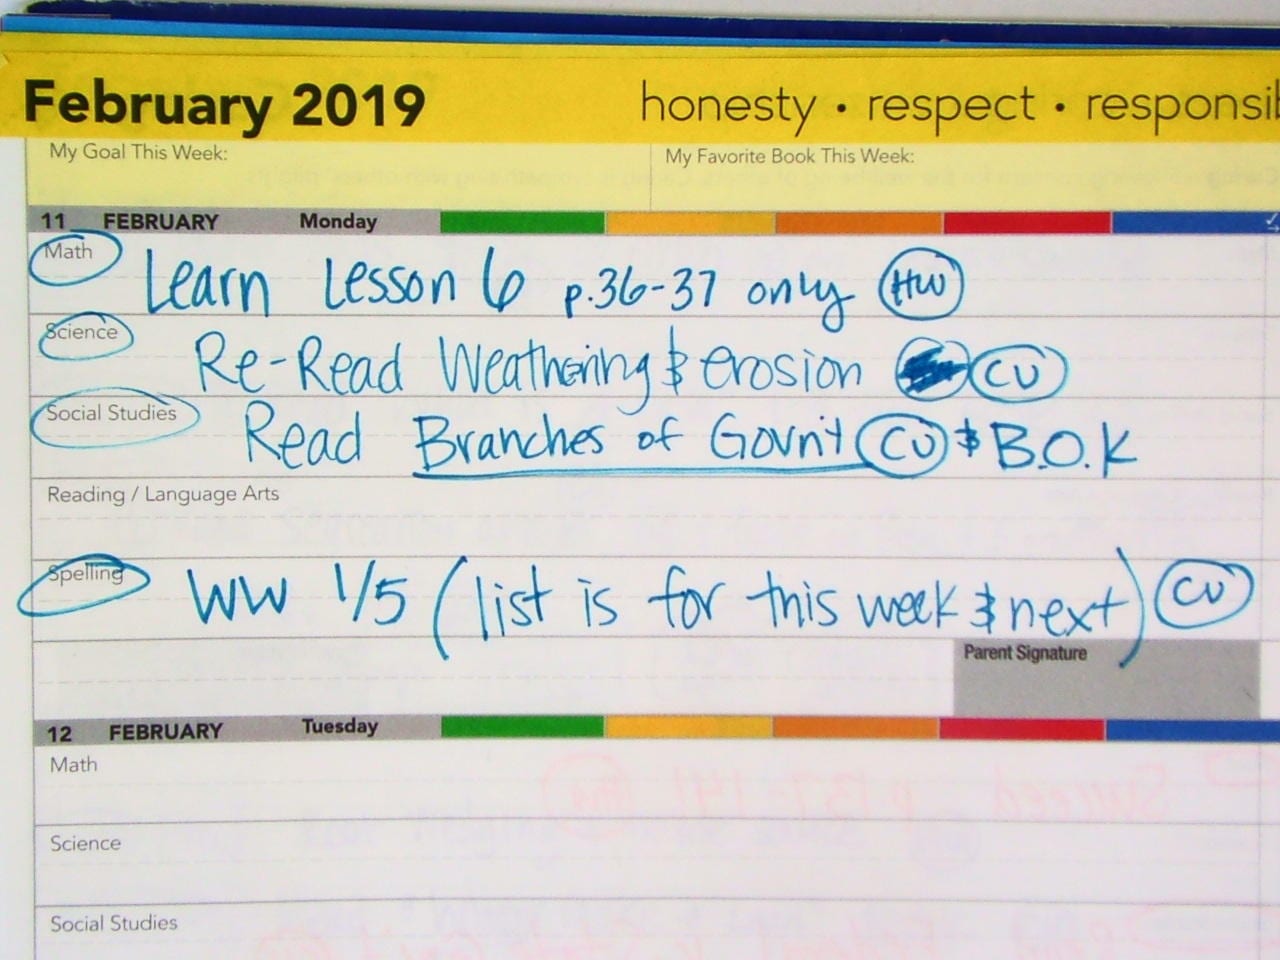 February 2019 honesty • respect • responsib
My Goal This Week: My Favorite Book This Week:
11 FEBRUARY Monday
Math Learn Lesson 6 p.36-37 only HW
Science Re-Read Weathering & erosion CU
Social Studies Read Branches of Govn't CU & B.O.K
Reading / Language Arts
Spelling WW 1/5 (list is for this week & next) CU
Parent Signature
12 FEBRUARY Tuesday
Math
Science
Social Studies